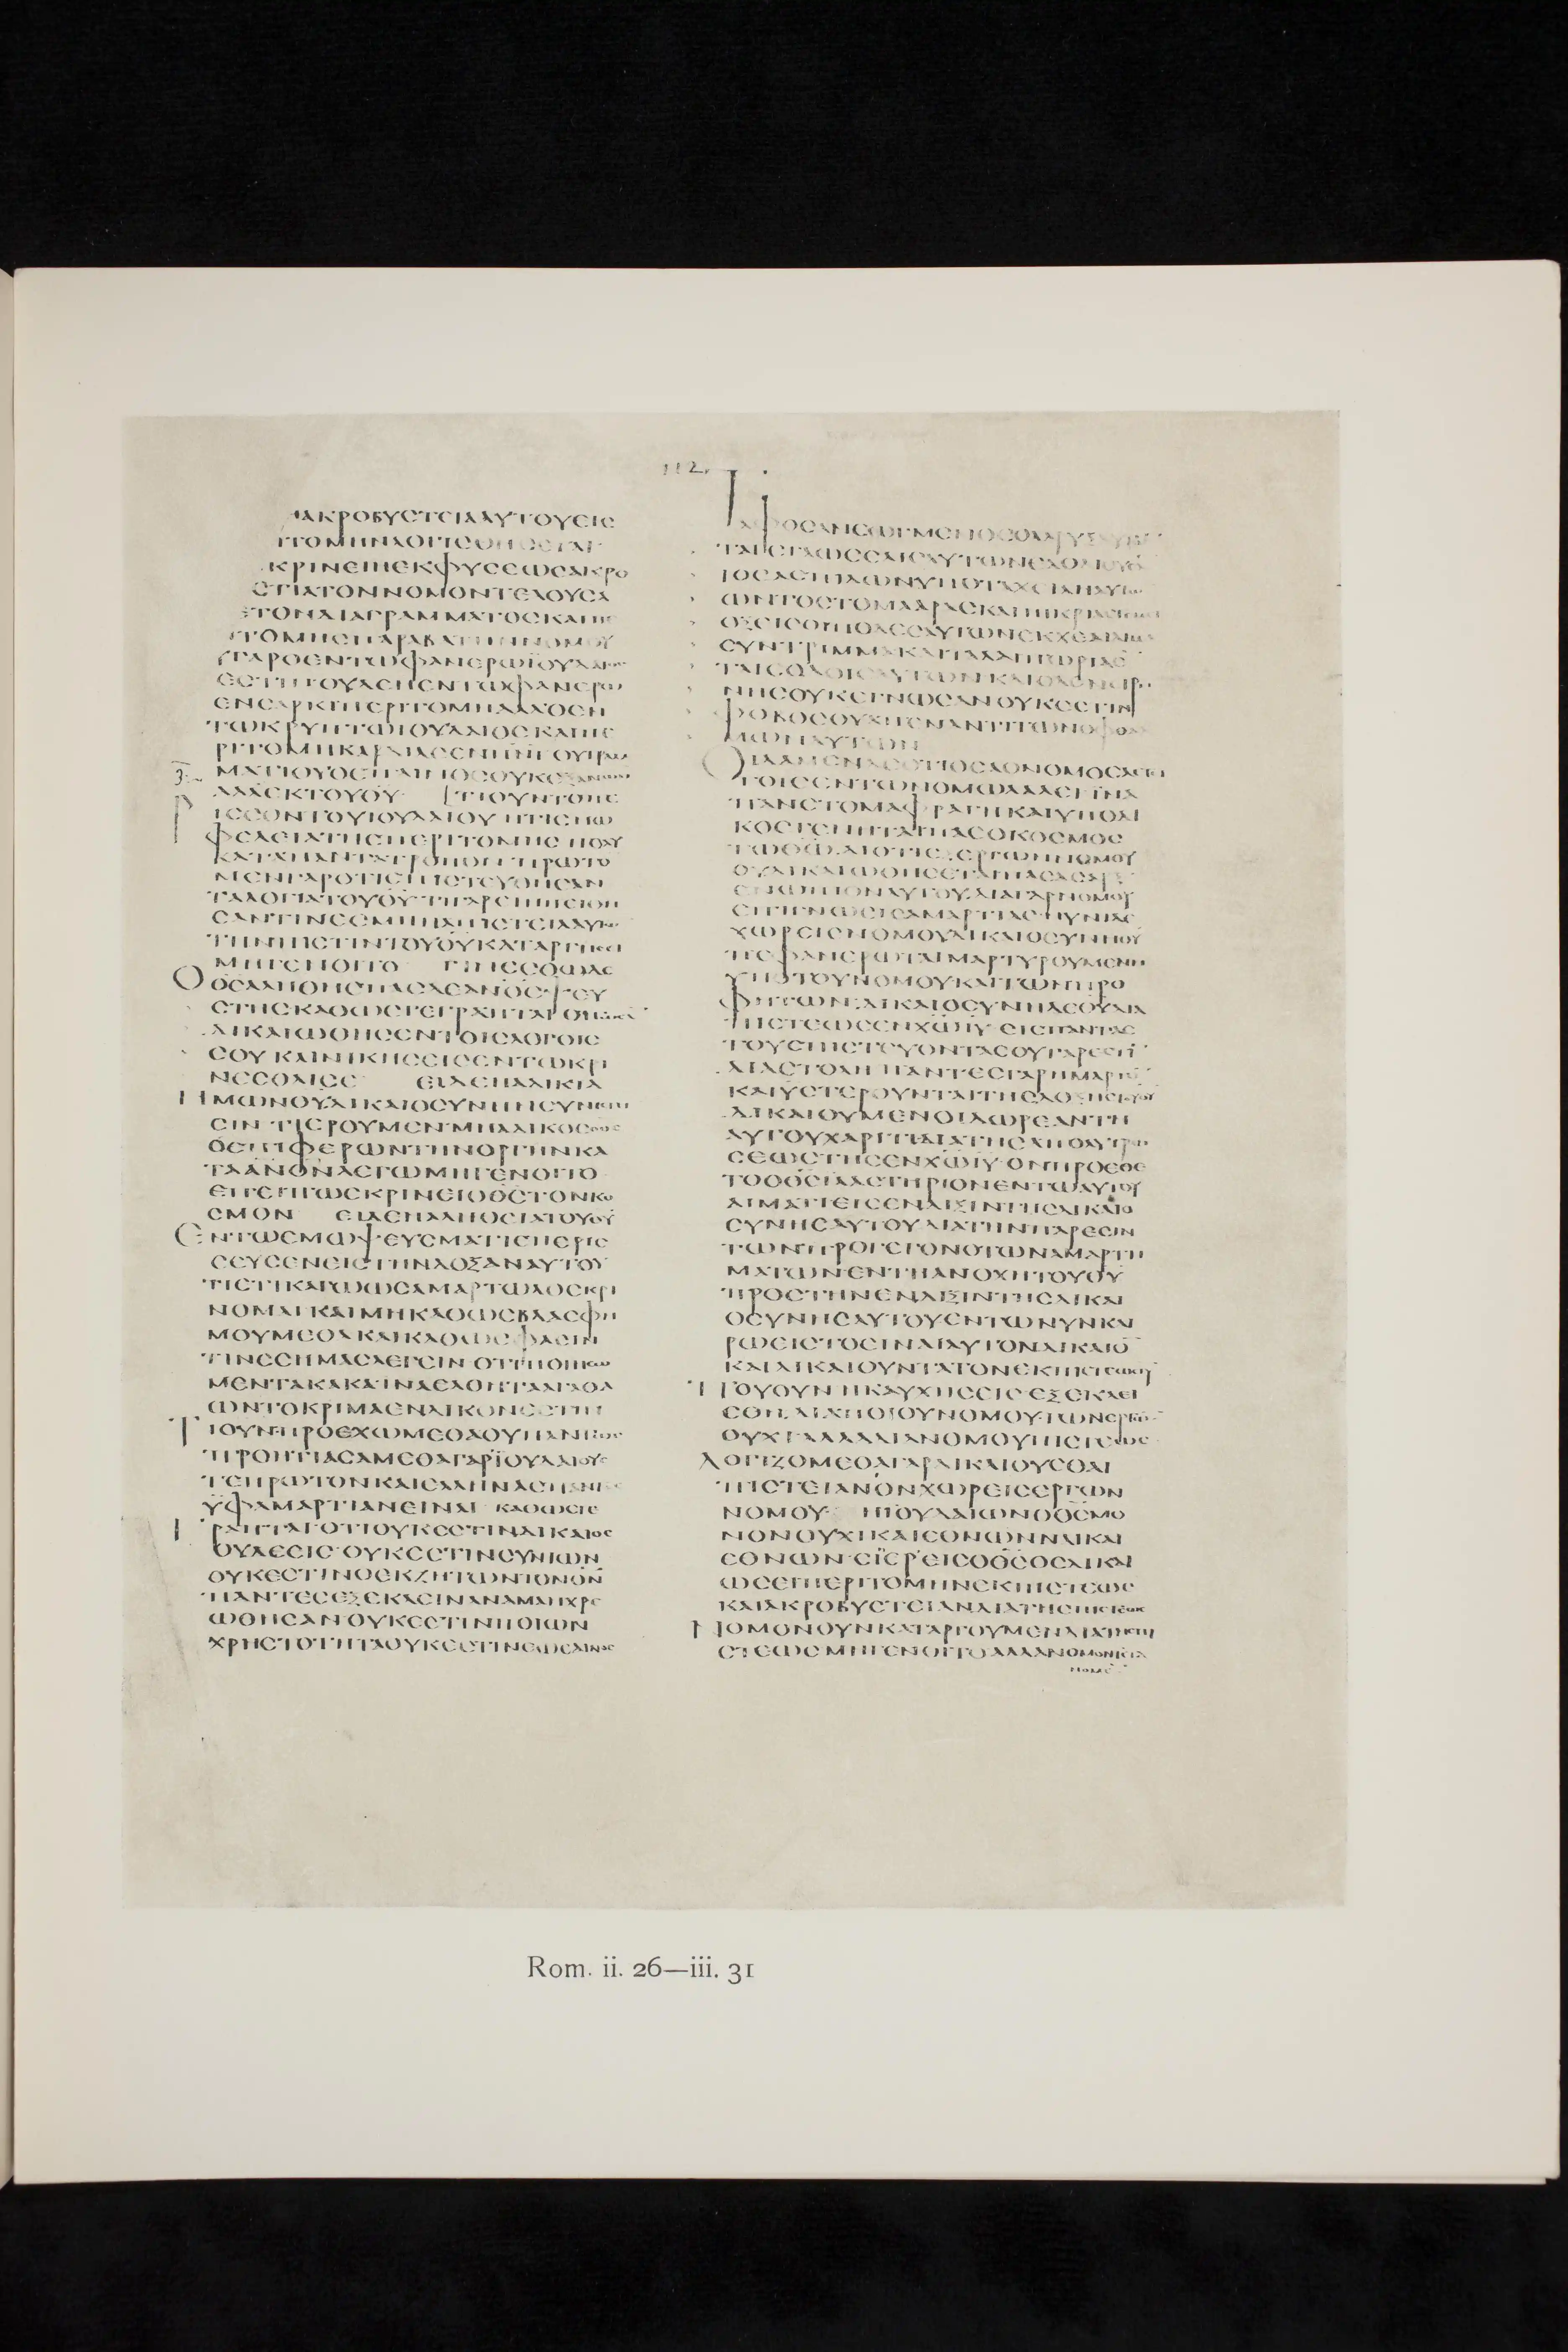 112.
ΗΑΚΡΟΒΥϹΤΕΙΑΑΥΤΟΥΕΙϹ
ΙΤΟΜΗΝΛΟΓΙϹΘΗϹΕΤΑΙ
ΚΡΙΝΕΙΗΕΚΦΥϹΕΩϹΑΚΡΟ
ϹΤΙΑΤΟΝΝΟΜΟΝΤΕΛΟΥϹΑ
ϹΕΤΟΝΔΙΑΓΡΑΜΜΑΤΟϹΚΑΙΠΕ
ΙΤΟΜΗϹΠΑΡΑΒΑΤΗΝΝΟΜΟΥ
ΥΓΑΡΟΕΝΤΩΦΑΝΕΡΩΪΟΥΔΑΙΟϹ
ΕϹΤΙΝΟΥΔΕΗΕΝΤΩΦΑΝΕΡΩ
ΕΝϹΑΡΚΙΠΕΡΙΤΟΜΗΑΛΛΟΕΝ
ΤΩΚΡΥΠΤΩΙΟΥΔΑΙΟϹΚΑΙΠΕ
ΡΙΤΟΜΗΚΑΡΔΙΑϹΕΝΠΝΙΟΥΓΡΑΜ
ΜΑΤΙΟΥΟΕΠΑΙΝΟϹΟΥΚΕΞΑΝΩΝ
ΑΛΛΕΚΤΟΥΘΥ ΤΙΟΥΝΤΟΠΕ
ΡΙϹϹΟΝΤΟΥΙΟΥΔΑΙΟΥ ΗΤΙϹΗΩ
ΦΕΛΕΙΑΤΗϹΠΕΡΙΤΟΜΗϹ ΠΟΛΥ
ΚΑΤΑΠΑΝΤΑΤΡΟΠΟΝ ΠΡΩΤΟ
ΜΕΝΓΑΡΟΤΙΕΠΙϹΤΕΥΘΗϹΑΝ
ΤΑΛΟΓΙΑΤΟΥΘΥ ΤΙΓΑΡΕΙΗΠΙϹΤΗ
ϹΑΝΤΙΝΕϹΜΗΗΑΠΙϹΤΕΙΑΑΥΤΩ
ΤΗΝΠΙϹΤΙΝΤΟΥΘΥΚΑΤΑΡΓΗϹΕΙ
ΜΗΓΕΝΟΙΤΟ ΓΙΝΕϹΘΩΔΕ
ΟΘϹΑΛΗΘΗϹΠΑϹΔΕΑΝΟϹΨΕΥ
ϹΤΗϹΚΑΘΩϹΓΕΓΡΑΠΤΑΙ
ΔΙΚΑΙΩΘΗϹΕΝΤΟΙϹΛΟΓΟΙϹ
ϹΟΥΚΑΙΝΙΚΗϹΕΙϹΕΝΤΩΚΡΙ
ΝΕϹΘΑΙϹΕ ΕΙΔΕΗΑΔΙΚΙΑ
ΗΜΩΝΘΥΔΙΚΑΙΟϹΥΝΗΝϹΥΝΙϹΤΗ
ϹΙΝ ΤΙΕΡΟΥΜΕΝΜΗΑΔΙΚΟϹ
ΟΘϹΟΕΠΙΦΕΡΩΝΤΗΝΟΡΓΗΝΚΑ
ΤΑΑΝΟΝΛΕΓΩΜΗΓΕΝΟΙΤΟ
ΕΠΕΙΠΩϹΚΡΙΝΕΙΟΘϹΤΟΝΚΟ
ϹΜΟΝ ΕΙΔΕΗΑΛΗΘΕΙΑΤΟΥΘΥ
ΕΝΤΩΕΜΩΨΕΥϹΜΑΤΙΕΠΕΡΙϹ
ϹΕΥϹΕΝΕΙϹΤΗΝΔΟΞΑΝΑΥΤΟΥ
ΤΙΕΤΙΚΑΓΩΩϹΑΜΑΡΤΩΛΟϹΚΡΙ
ΝΟΜΑΙΚΑΙΜΗΚΑΘΩϹΒΛΑϹΦΗ
ΜΟΥΜΕΘΑΚΑΙΚΑΘΩϹΦΑϹΙΝ
ΤΙΝΕϹΗΜΑϹΛΕΓΕΙΝΟΤΙΠΟΙΗϹΩ
ΜΕΝΤΑΚΑΚΑΙΝΑΕΛΘΗΤΑΑΓΑΘΑ
ΩΝΤΟΚΡΙΜΑΕΝΔΙΚΟΝΕϹΤΙΝ
ΤΙΟΥΝΠΡΟΕΧΩΜΕΘΑΟΥΠΑΝΤΩϹ
ΠΡΟΗΤΙΑϹΑΜΕΘΑΓΑΡΪΟΥΔΑΙΟΥϹ
ΤΕΠΡΩΤΟΝΚΑΙΕΛΛΗΝΑϹΠΑΝΤΑϹ
ΥΦΑΜΑΡΤΙΑΝΕΙΝΑΙ ΚΑΘΩϹΓΕ
ΓΡΑΠΤΑΙΟΤΙΟΥΚΕϹΤΙΝΔΙΚΑΙΟϹ
ΟΥΔΕΕΙϹ ΟΥΚΕϹΤΙΝϹΥΝΙΩΝ
ΟΥΚΕϹΤΙΝΟΕΚΖΗΤΩΝΤΟΝΘΝ
ΠΑΝΤΕϹΕΞΕΚΛΕΙΝΑΝΑΜΑΗΧΡΕ
ΩΘΗϹΑΝΟΥΚΕϹΤΙΝΠΟΙΩΝ
ΧΡΗϹΤΟΤΗΤΑΟΥΚΕϹΤΙΝΕΩϹΕΝΟϹ
ΤΑΦΟϹΑΝΕΩΓΜΕΝΟϹΟΛΑΡΥΞ
ΤΑΙϹΓΛΩϹϹΑΙϹΑΥΤΩΝΕΔΟΛΙΟΥϹΑ
ΙΟϹΑϹΠΙΔΩΝΥΠΟΤΑΧΕΙΛΗΑΥΤΩ
ΩΝΤΟϹΤΟΜΑΑΡΑϹΚΑΙΠΙΚΡΙΑϹ
ΟΞΕΙϹΟΙΠΟΔΕϹΑΥΤΩΝΕΚΧΕΑΙΑΙΜΑ
ϹΥΝΤΡΙΜΜΑΚΑΙΤΑΛΑΙΠΩΡΙΑ
ΤΑΙϹΟΔΟΙϹΑΥΤΩΝΚΑΙΟΔΟΝΕΙΡΗ
ΝΗϹΟΥΚΕΓΝΩϹΑΝΟΥΚΕϹΤΙΝ
ΦΟΒΟϹΘΥΑΠΕΝΑΝΤΙΤΩΝΟΦΘΑΛ
ΜΩΝΑΥΤΩΝ
ΟΙΔΑΜΕΝΔΕΟΤΙΟϹΑΟΝΟΜΟϹΛΕΓΕΙ
ΤΟΙϹΕΝΤΩΝΟΜΩΛΑΛΕΙΪΝΑ
ΠΑΝϹΤΟΜΑΦΡΑΓΗΚΑΙΥΠΟΔΙ
ΚΟϹΓΕΝΗΤΑΙΠΑϹΟΚΟϹΜΟϹ
ΤΩΘΩΔΙΟΤΙΕΞΕΡΓΩΝΝΟΜΟΥ
ΟΥΔΙΚΑΙΩΘΗϹΕΤΑΙΠΑϹΑϹΑΡΞ
ΕΝΩΠΙΟΝΑΥΤΟΥΔΙΑΓΑΡΝΟΜΟΥ
ΕΠΙΓΝΩϹΙϹΑΜΑΡΤΙΑϹΝΥΝΙΔΕ
ΧΩΡΕΙϹΝΟΜΟΥΔΙΚΑΙΟϹΥΝΗΘΥ
ΠΕΦΑΝΕΡΩΤΑΙΜΑΡΤΥΡΟΥΜΕΝΗ
ΥΠΟΤΟΥΝΟΜΟΥΚΑΙΤΩΝΠΡΟ
ΦΗΤΩΝΔΙΚΑΙΟϹΥΝΗΔΕΘΥΔΙΑ
ΠΙϹΤΕΩϹΕΝΧΩΙΥ ΕΙϹΠΑΝΤΑϹ
ΤΟΥϹΠΙϹΤΕΥΟΝΤΑϹΟΥΓΑΡΕϹΤΙ
ΔΙΑϹΤΟΛΗ ΠΑΝΤΕϹΓΑΡΗΜΑΡΤΟ
ΚΑΙΥϹΤΕΡΟΥΝΤΑΙΤΗϹΔΟΞΗϹΤΟΥΘΥ
ΔΙΚΑΙΟΥΜΕΝΟΙΔΩΡΕΑΝΤΗ
ΑΥΤΟΥΧΑΡΙΤΙΔΙΑΤΗϹΑΠΟΛΥΤΡΩ
ϹΕΩϹΤΗϹΕΝΧΩΙΥ ΟΝΠΡΟΕΘΕ
ΤΟΟΘϹΙΛΑϹΤΗΡΙΟΝΕΝΤΩΑΥΤΟΥ
ΑΙΜΑΤΙΕΙϹΕΝΔΙΞΙΝΤΗϹΔΙΚΑΙΟ
ϹΥΝΗϹΑΥΤΟΥΔΙΑΤΗΝΠΑΡΕϹΙΝ
ΤΩΝΠΡΟΓΕΓΟΝΟΤΩΝΑΜΑΡΤΗ
ΜΑΤΩΝΕΝΤΗΑΝΟΧΗΤΟΥΘΥ
ΠΡΟϹΤΗΝΕΝΔΙΞΙΝΤΗϹΔΙΚΑΙ
ΟϹΥΝΗϹΑΥΤΟΥΕΝΤΩΝΥΝΚΑΙ
ΡΩΕΙϹΤΟΕΙΝΑΙΑΥΤΟΝΔΙΚΑΙΟ
ΚΑΙΔΙΚΑΙΟΥΝΤΑΤΟΝΕΚΠΙϹΤΕΩϹΙΥ
ΠΟΥΟΥΝΗΚΑΥΧΗϹΕΙϹ ΕΞΕΚΛΕΙ
ϹΘΗΔΙΑΠΟΙΟΥΝΟΜΟΥΤΩΝΕΡΓΩ
ΟΥΧΙΑΛΛΑΔΙΑΝΟΜΟΥΠΙϹΤΕΩϹ
ΛΟΓΙΖΟΜΕΘΑΓΑΡΔΙΚΑΙΟΥϹΘΑΙ
ΠΙϹΤΕΙΑΝΟΝΧΩΡΕΙϹΕΡΓΩΝ
ΝΟΜΟΥ ΗΪΟΥΔΑΙΩΝΟΘϹΜΟ
ΝΟΝΟΥΧΙΚΑΙΕΘΝΩΝΝΑΙΚΑΙ
ΕΘΝΩΝ ΕΙΠΕΡΕΙϹΟΘϹΟϹΔΙΚΑΙ
ΩϹΕΙΠΕΡΙΤΟΜΗΝΕΚΠΙϹΤΕΩϹ
ΚΑΙΑΚΡΟΒΥϹΤΕΙΑΝΔΙΑΤΗϹΠΙϹΤΕΩϹ
ΝΟΜΟΝΟΥΝΚΑΤΑΡΓΟΥΜΕΝΔΙΑΤΗϹΠΙ
ϹΤΕΩϹΜΗΓΕΝΟΙΤΟΑΛΛΑΝΟΜΟΝΙϹΤΑ
ΝΟΜΕ
Rom. ii. 26—iii. 31